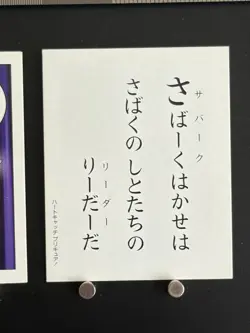 さばーくはかせは
サバーク
さばくの しとたちの
りーだーだ
リーダー
ハートキャッチプリキュア！